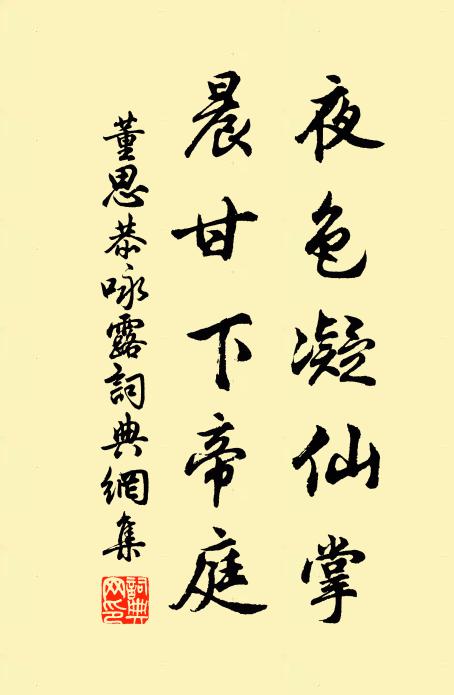 夜色凝仙掌
晨甘下帝庭
董思恭咏露詞典網集
詞典網印